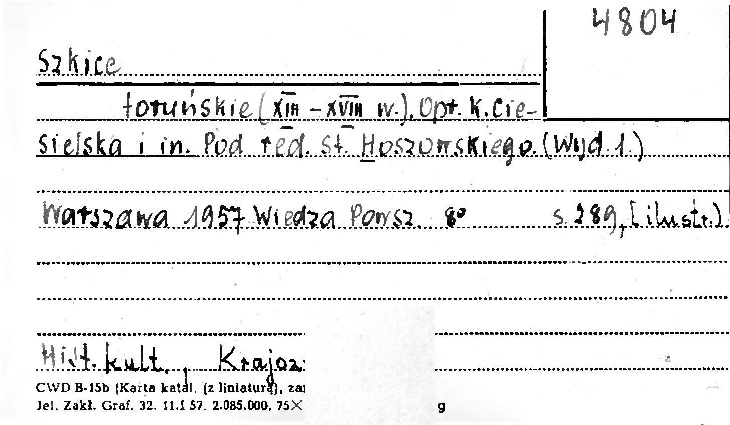 4804
Szkice
toruńskie (XIII – XVIII w.). Opr. K. Cie-
sielska i in. Pod red. St. Hoszowskiego. (Wyd. 1.)
Warszawa 1957 Wiedza Powsz. 8° s. 289, [ilustr.)
Hist. kult., Krajoz
CWD B-15b (Karta katal. (z liniaturą), zam
Jel. Zakł. Graf. 32. 11.I 57. 2.085.000, 75X g